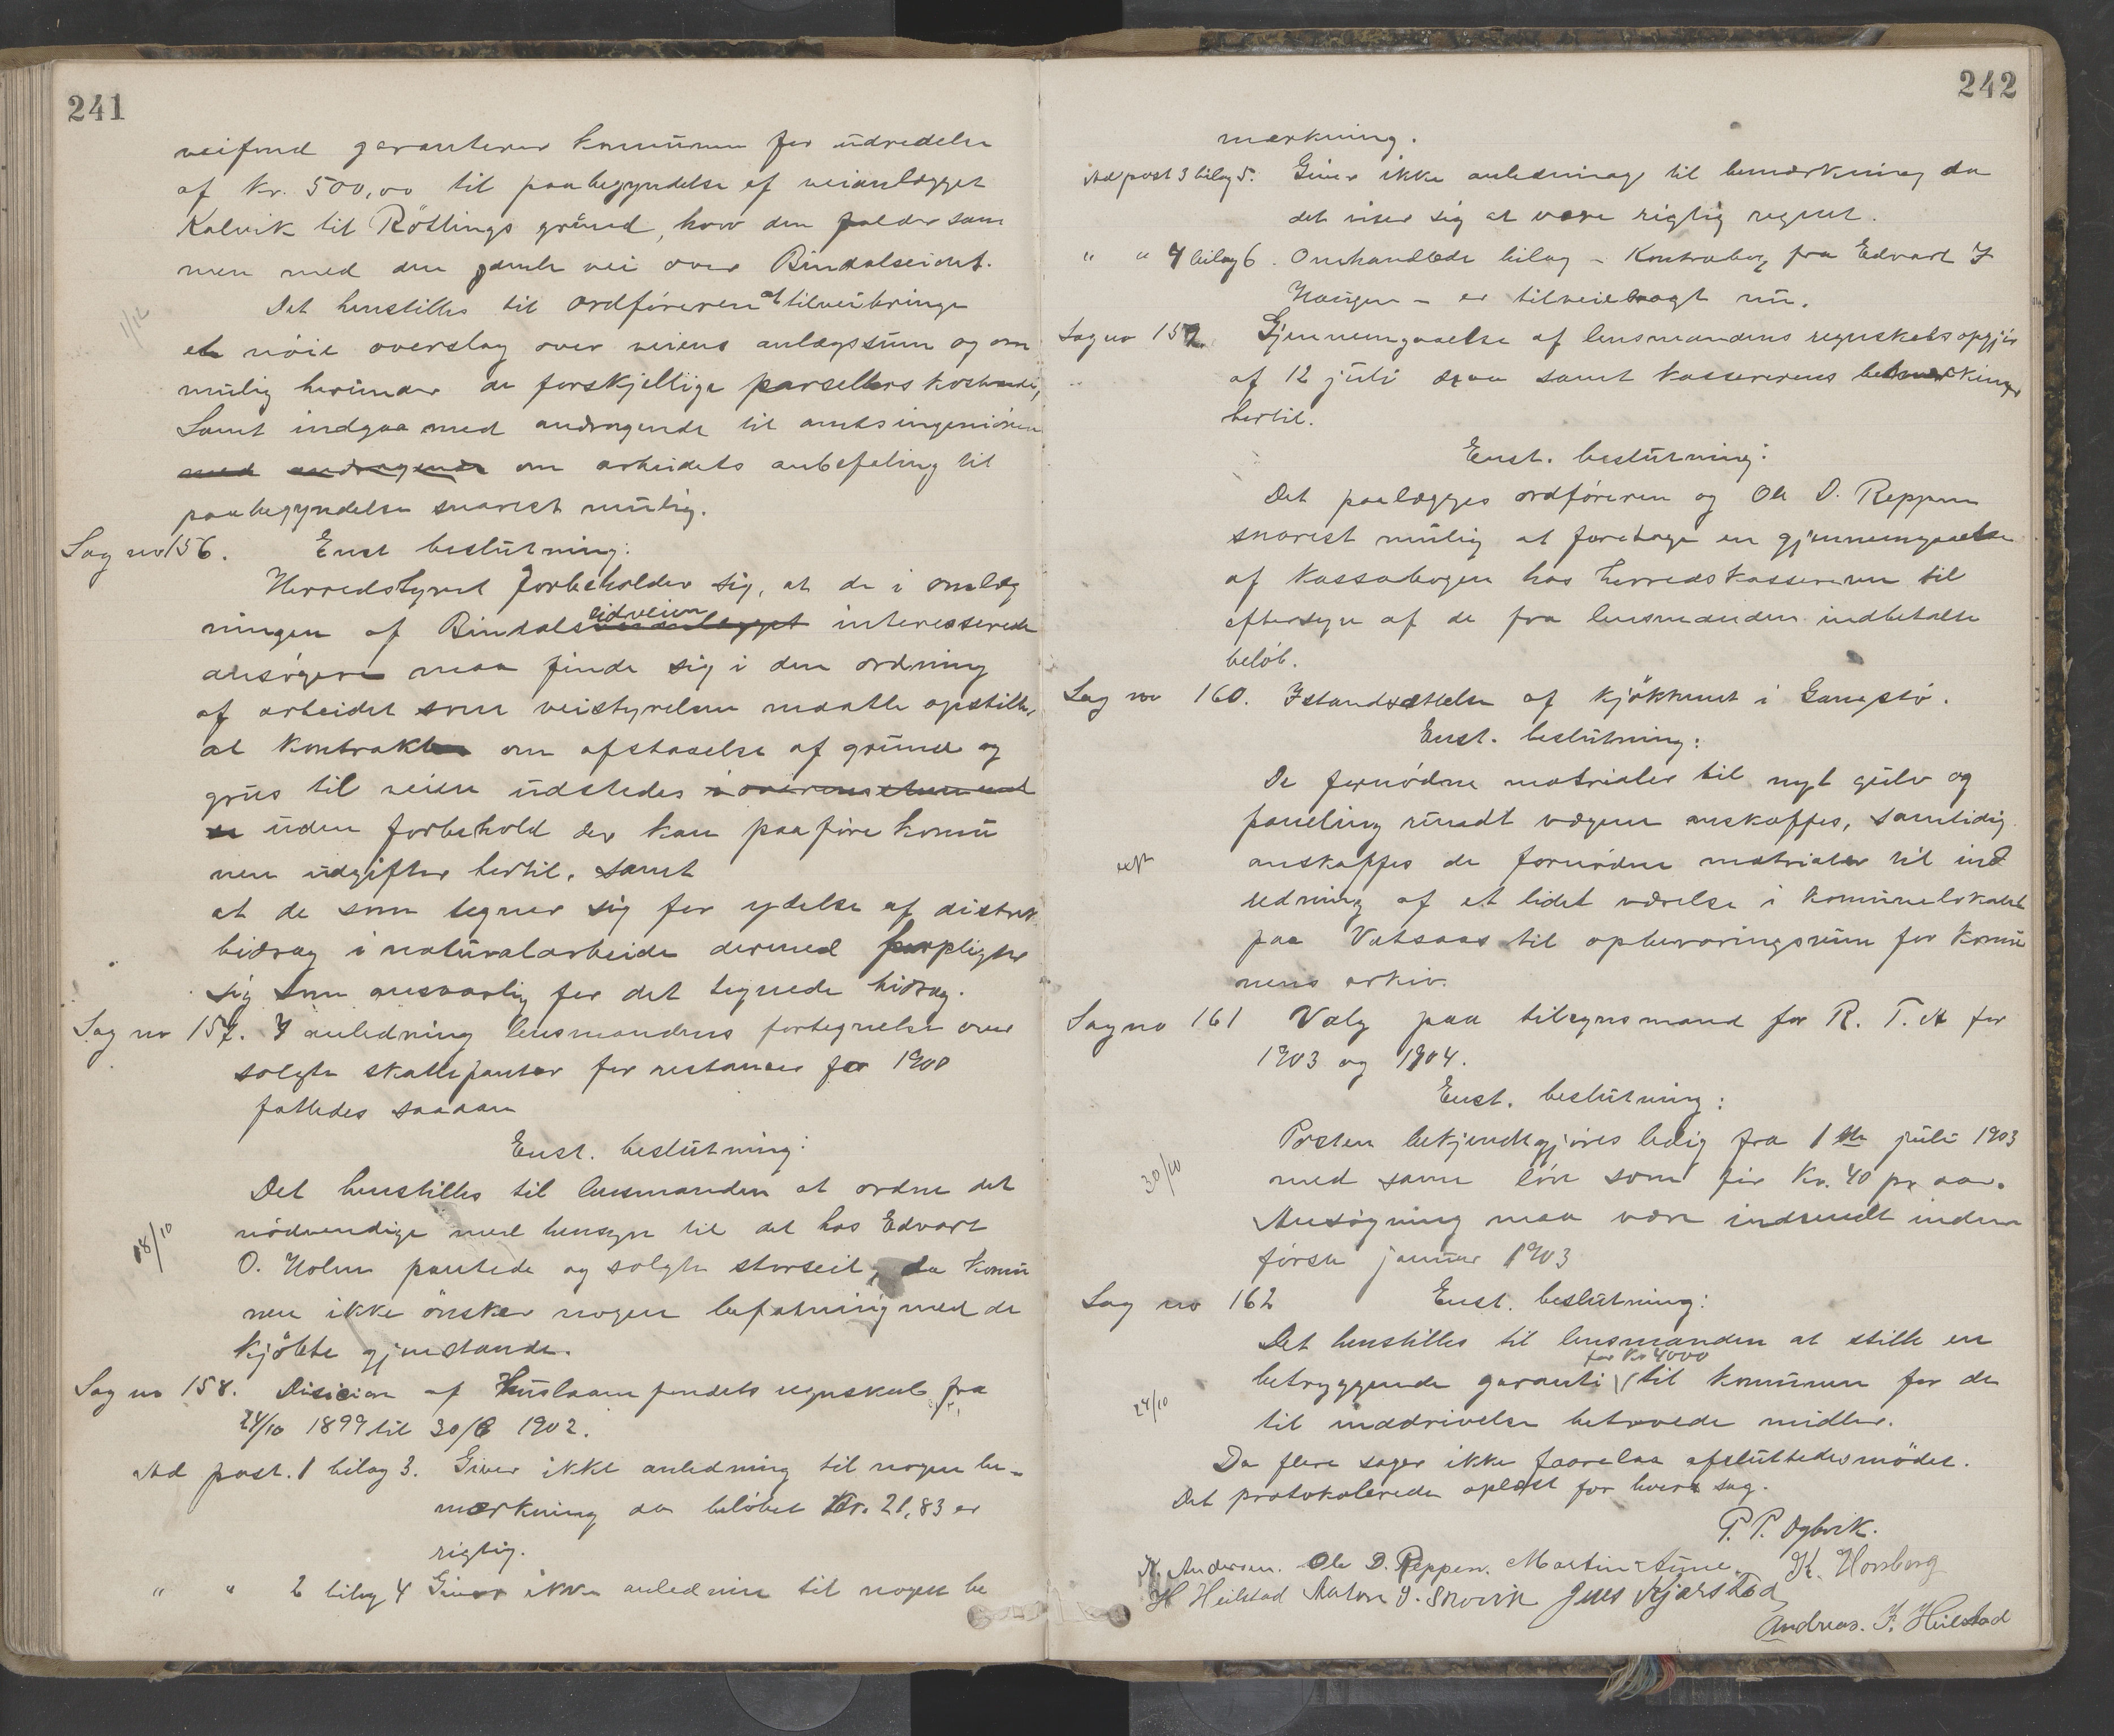 241
veifond garanterer kommunen for udredelse
af Kr. 500,00 til paabegyndelse af veianlægget
Kalvik til Röttings grund, hvor den falder sam
men med den gamle vei over Bindalseidet.
1/12
Det henstilles til ordföreren at tilveiebringe
et nöie overslag over veiens anlægssum og om
mulig herunder de forskjellige parsellers kostende,
Samt indgaa med andragende til amtsingeniören
med andragende om arbeidets anbefaling til
paabegyndelse snarest mulig.
Sag no 156. Enst beslutning:
Herredstyret forbeholder sig, at de i omlæg
eidveien
ningen af Bindalsveianlægget interesserede
ansögere maa finde sig i den ordning
af arbeidet som veistyrelsen maatte opstille,
at kontrakter om afstaaelse af grund og
grus til veien udstedes i overensstem med
uden forbehold der kan paaföre komu
nen udgifter hertil, samt
at de som tegner sig for ydelse af distrikts
bidrag i naturalarbeide dermed forpligter
sig som ansvarlig for det tegnede bidrag.
Sag no 157. I anledning lensmandens fortegnelse over
solgte skattepanter for restancer for 1900
fattedes saadan
Enst. beslutning:
Det henstilles til lensmanden at ordne det
18/10
nödvendige med hensyn til det hos Edvart
O. Holm pantede og solgte storseil, da komu
nen ikke önsker nogen befatning med de
kjöbte gjenstande.
Sag no 158. Disicion af Huslaanefondets regnskab fra
24/10 1899 til 30/6 1902.
Ad post. 1 bilag 3. Giver ikke anledning til nogen be-
mærkning da belöbet Kr. 21,83 er
rigtig.
" " 2 bilag 4 Giver ikke anledning til nogen be
242
mærkning.
Ad post 3 bilag 5. Giver ikke anledninge til bemærkning da
det viser sig at være rigtig regnet.
" " 4 bilag 6. Omhandlede bilag – Kontrabog fra Edvart I
Haugen – er tilveiebragt nu.
Sag no 159. Gjennemgaaelse af lensmandens regnskabsopgjör
af 12 juli samt kassererens bemærkninger
hertil.
Enst. beslutning:
Det paalægges ordföreren og Ole D. Reppen
snarest mulig at foretage en gjennemgaaelse
af kassabogen hos herredskassereren til
eftersyn af de fra lensmanden indbetalte
belöb.
Sag no 160. Istandsættelse af kjökkenet i Gangstö.
Enst. beslutning:
De fornödne matrialer til nyt gulv og
paneling rundt vægene anskaffes, samtidig
anskaffes de fornödne matrialer til ind
redning af et lidet værelse i komunelokalet
paa Vatsaas til opbevaringsrum for komu
nens arkiv.
Sag no 161 Valg paa tilsynsmand for R. T. A for
1903 og 1904.
Enst. beslutning:
Posten bekjendtgjöres ledig fra 1ste juli 1903
30/10
med samme lön som för Kr. 40 pr aar.
Ansögning maa være indsendt inden
förste januar 1903
Sag no 162 Enst. beslutning:
Det henstilles til lensmanden at stille en
for Kr 4000
betryggende garanti til komunen for de
24/10
til inddrivelse betroede midler.
Da flere sager ikke foorelaa afsluttedes mödet.
Det protokolerede oplæst for hver sag.
P. P. Dybvik.
K. Andersen. Ole D. Reppen. Martin Aune. K. Horsberg
H Heilstad Anton J. Skovik Jens Kjærstad
Andreas. J. Heilstad